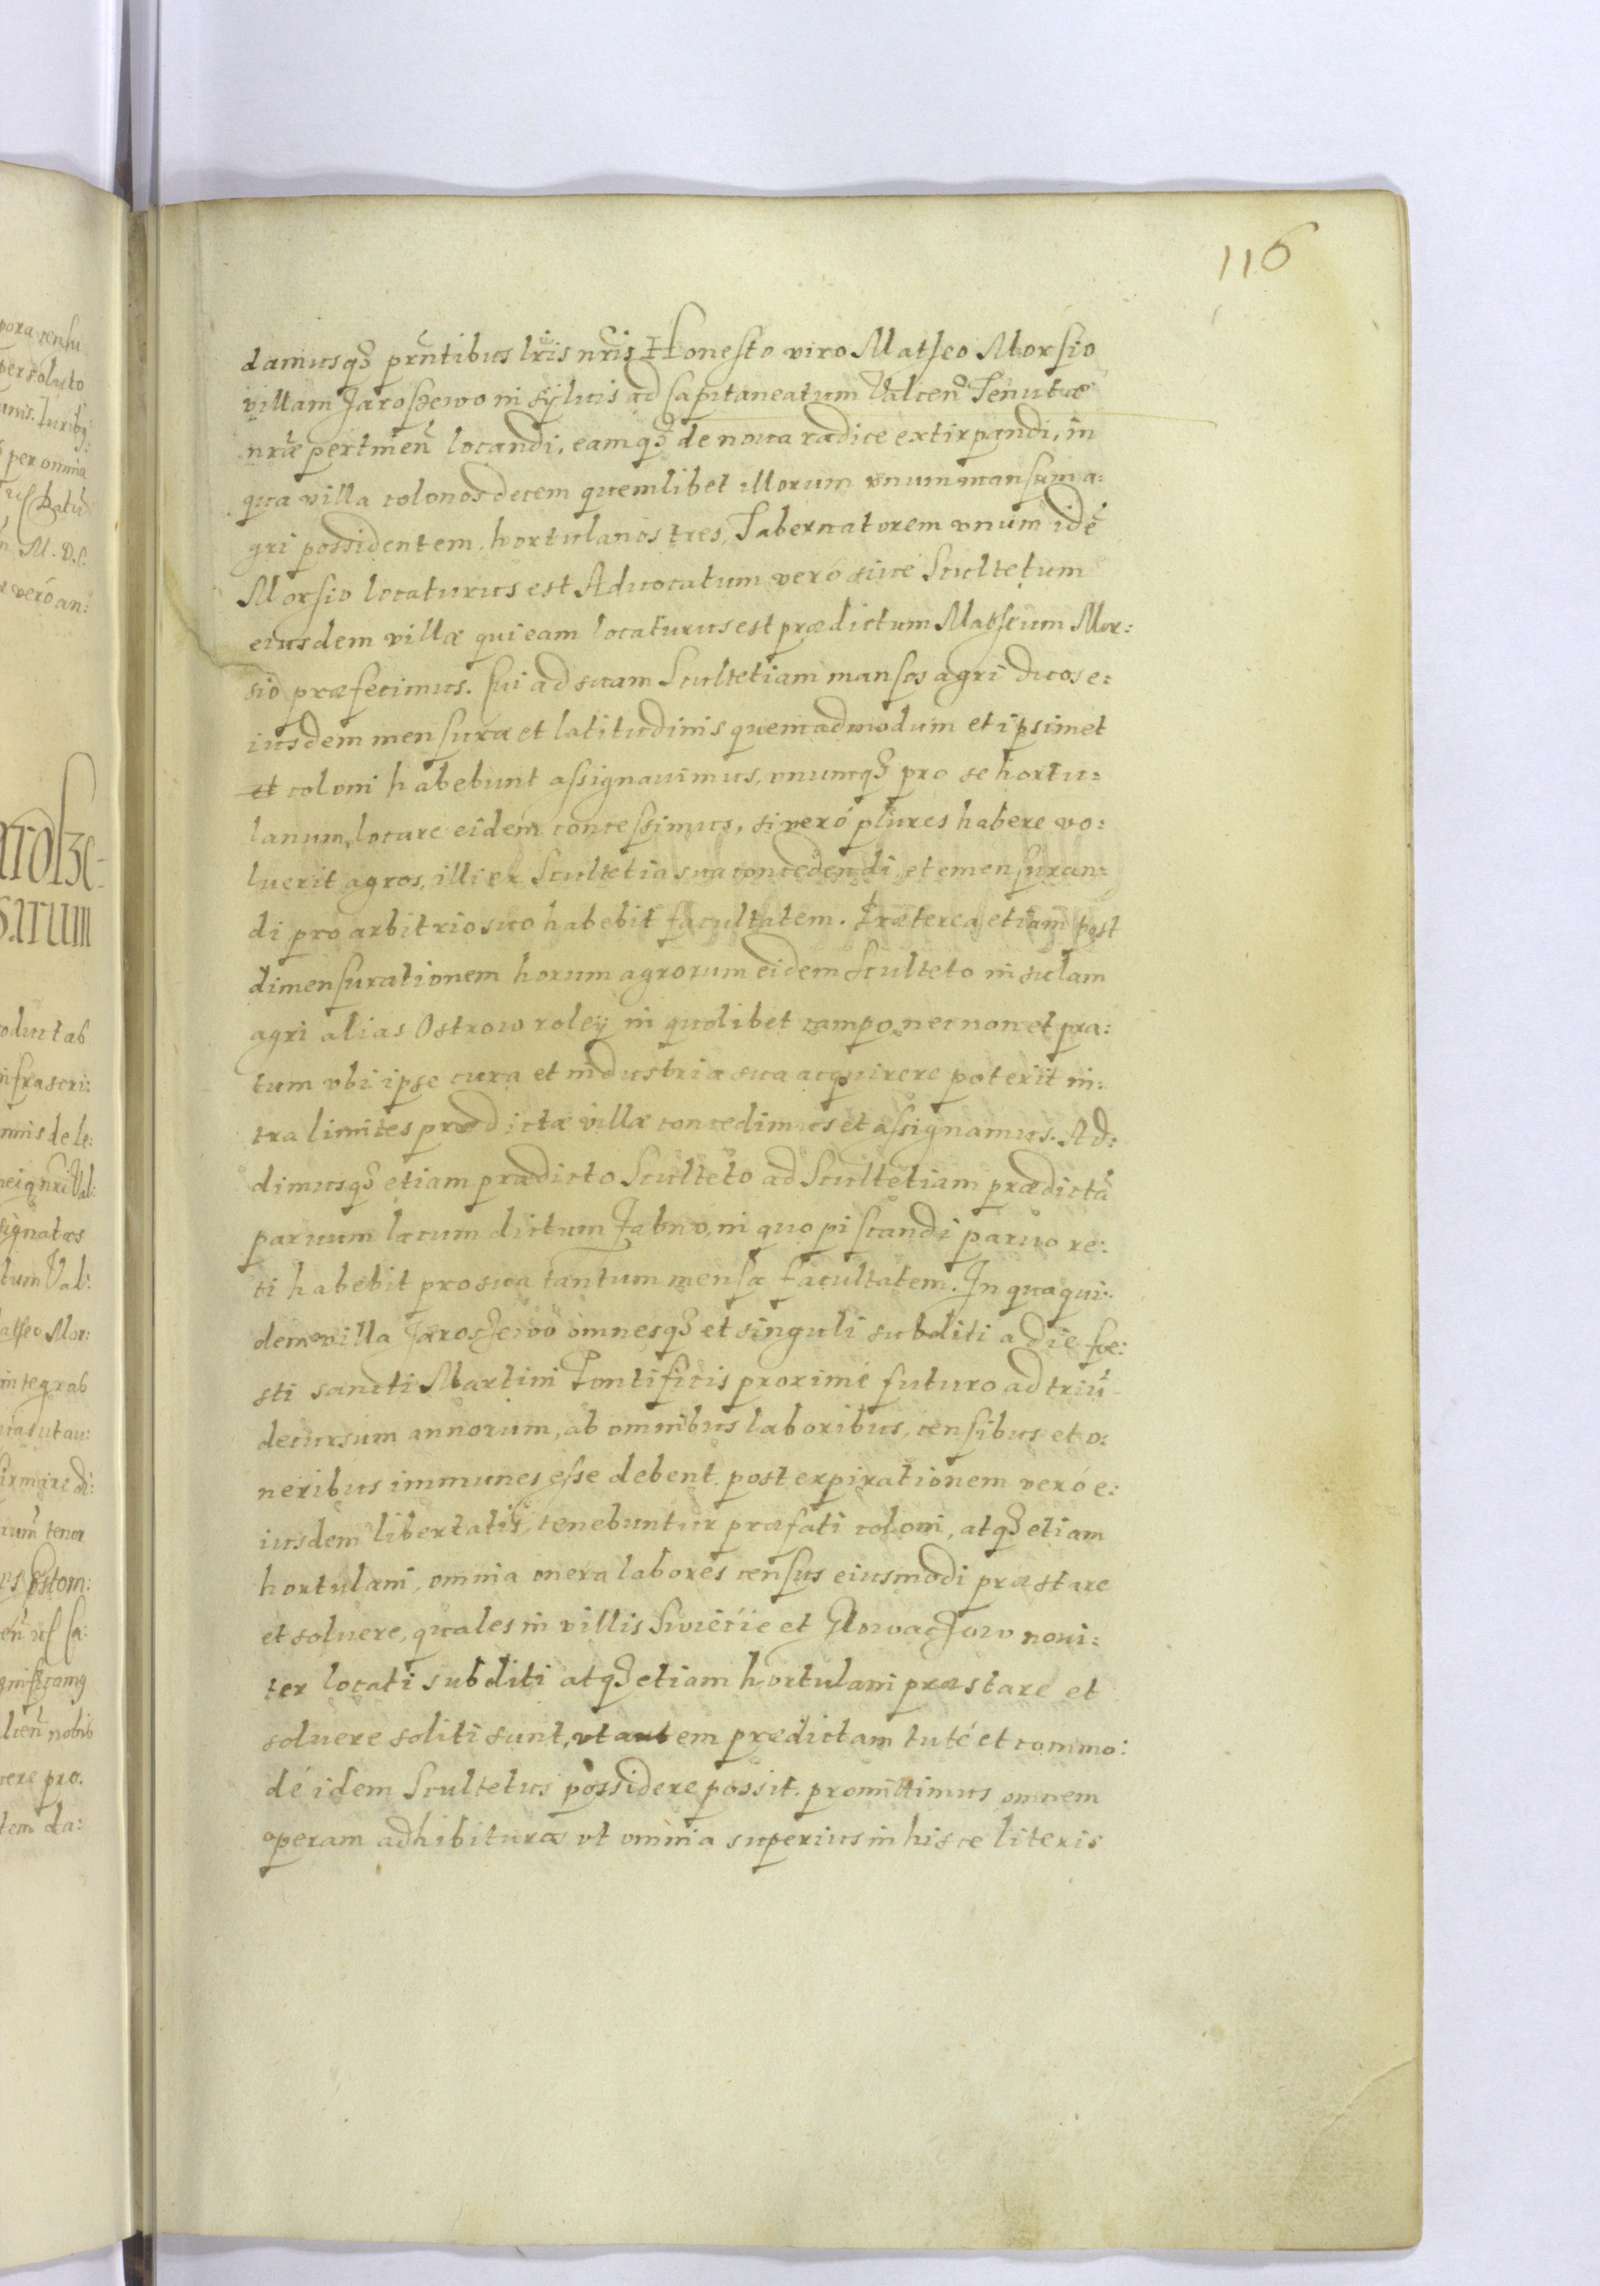 116
damusqȝ prñtibus lris nris Honesto viro Matheo Morsio
villam Jaroszewo in syluis ad Capitaneatum Valcen Tenutæ
nræ pertinen locandi, eamqȝ de noua radice extirpandi, in
qua villa colonos decem quemlibet illorum vnum mansum a:
gri possidentem, hortulanos tres, Tabernatorem vnum idē
Morsio locaturus est Aduocatum veró siue Scultetum
eiusdem villæ qui eam locaturus est prædictum Matheum Mor:
sio præfecimus. Cui ad suam Scultetiam mansos agri duos e:
iusdem mensuræ et latitudinis quemadmodum et ipsimet
et coloni habebunt assignauimus, vnumqȝ pro se hortu:
lanum locare eidem concessimus, si veró plures habere vo:
luerit agros, illi ex Scultetia sua concedendi, et emensuran:
di pro arbitrio suo habebit facultatem. Præterea etiam post
dimensurationem horum agrorum eidem Sculteto insulam
agri alias Ostrow roley in quolibet campo, nec non et pra:
tum vbi ipse cura et industria sua acquirere poterit in:
tra limites prædictæ villæ concedimus et assignamus. Ad:
dimusqȝ etiam prædicto Sculteto ad Scultetiam prædictā
paruum lacum dictum Jabno, in quo piscandi paruo re:
ti habebit pro sua tantum mensa facultatem. In qua qui:
dem villa Jaroszewo omnesqȝ et singuli subditi a die fæ:
sti sancti Martini Pontificis proximé futuro ad triū
decursum annorum, ab omnibus laboribus, censibus et o:
neribus immunes esse debent, post expirationem veró e:
iusdem libertatis, tenebuntur præfati coloni, atqȝ etiam
hortulani, omnia onera labores census eiusmodi præstare
et soluere, quales in villis Swiecie et noui:
ter locati subditi atqȝ etiam hortulani præstare et
soluere soliti sunt, vt autem prædictam tuté et commo:
dé idem Scultetus possidere possit. promittimus omnem
operam adhibituros vt omnia superius in hisce literis